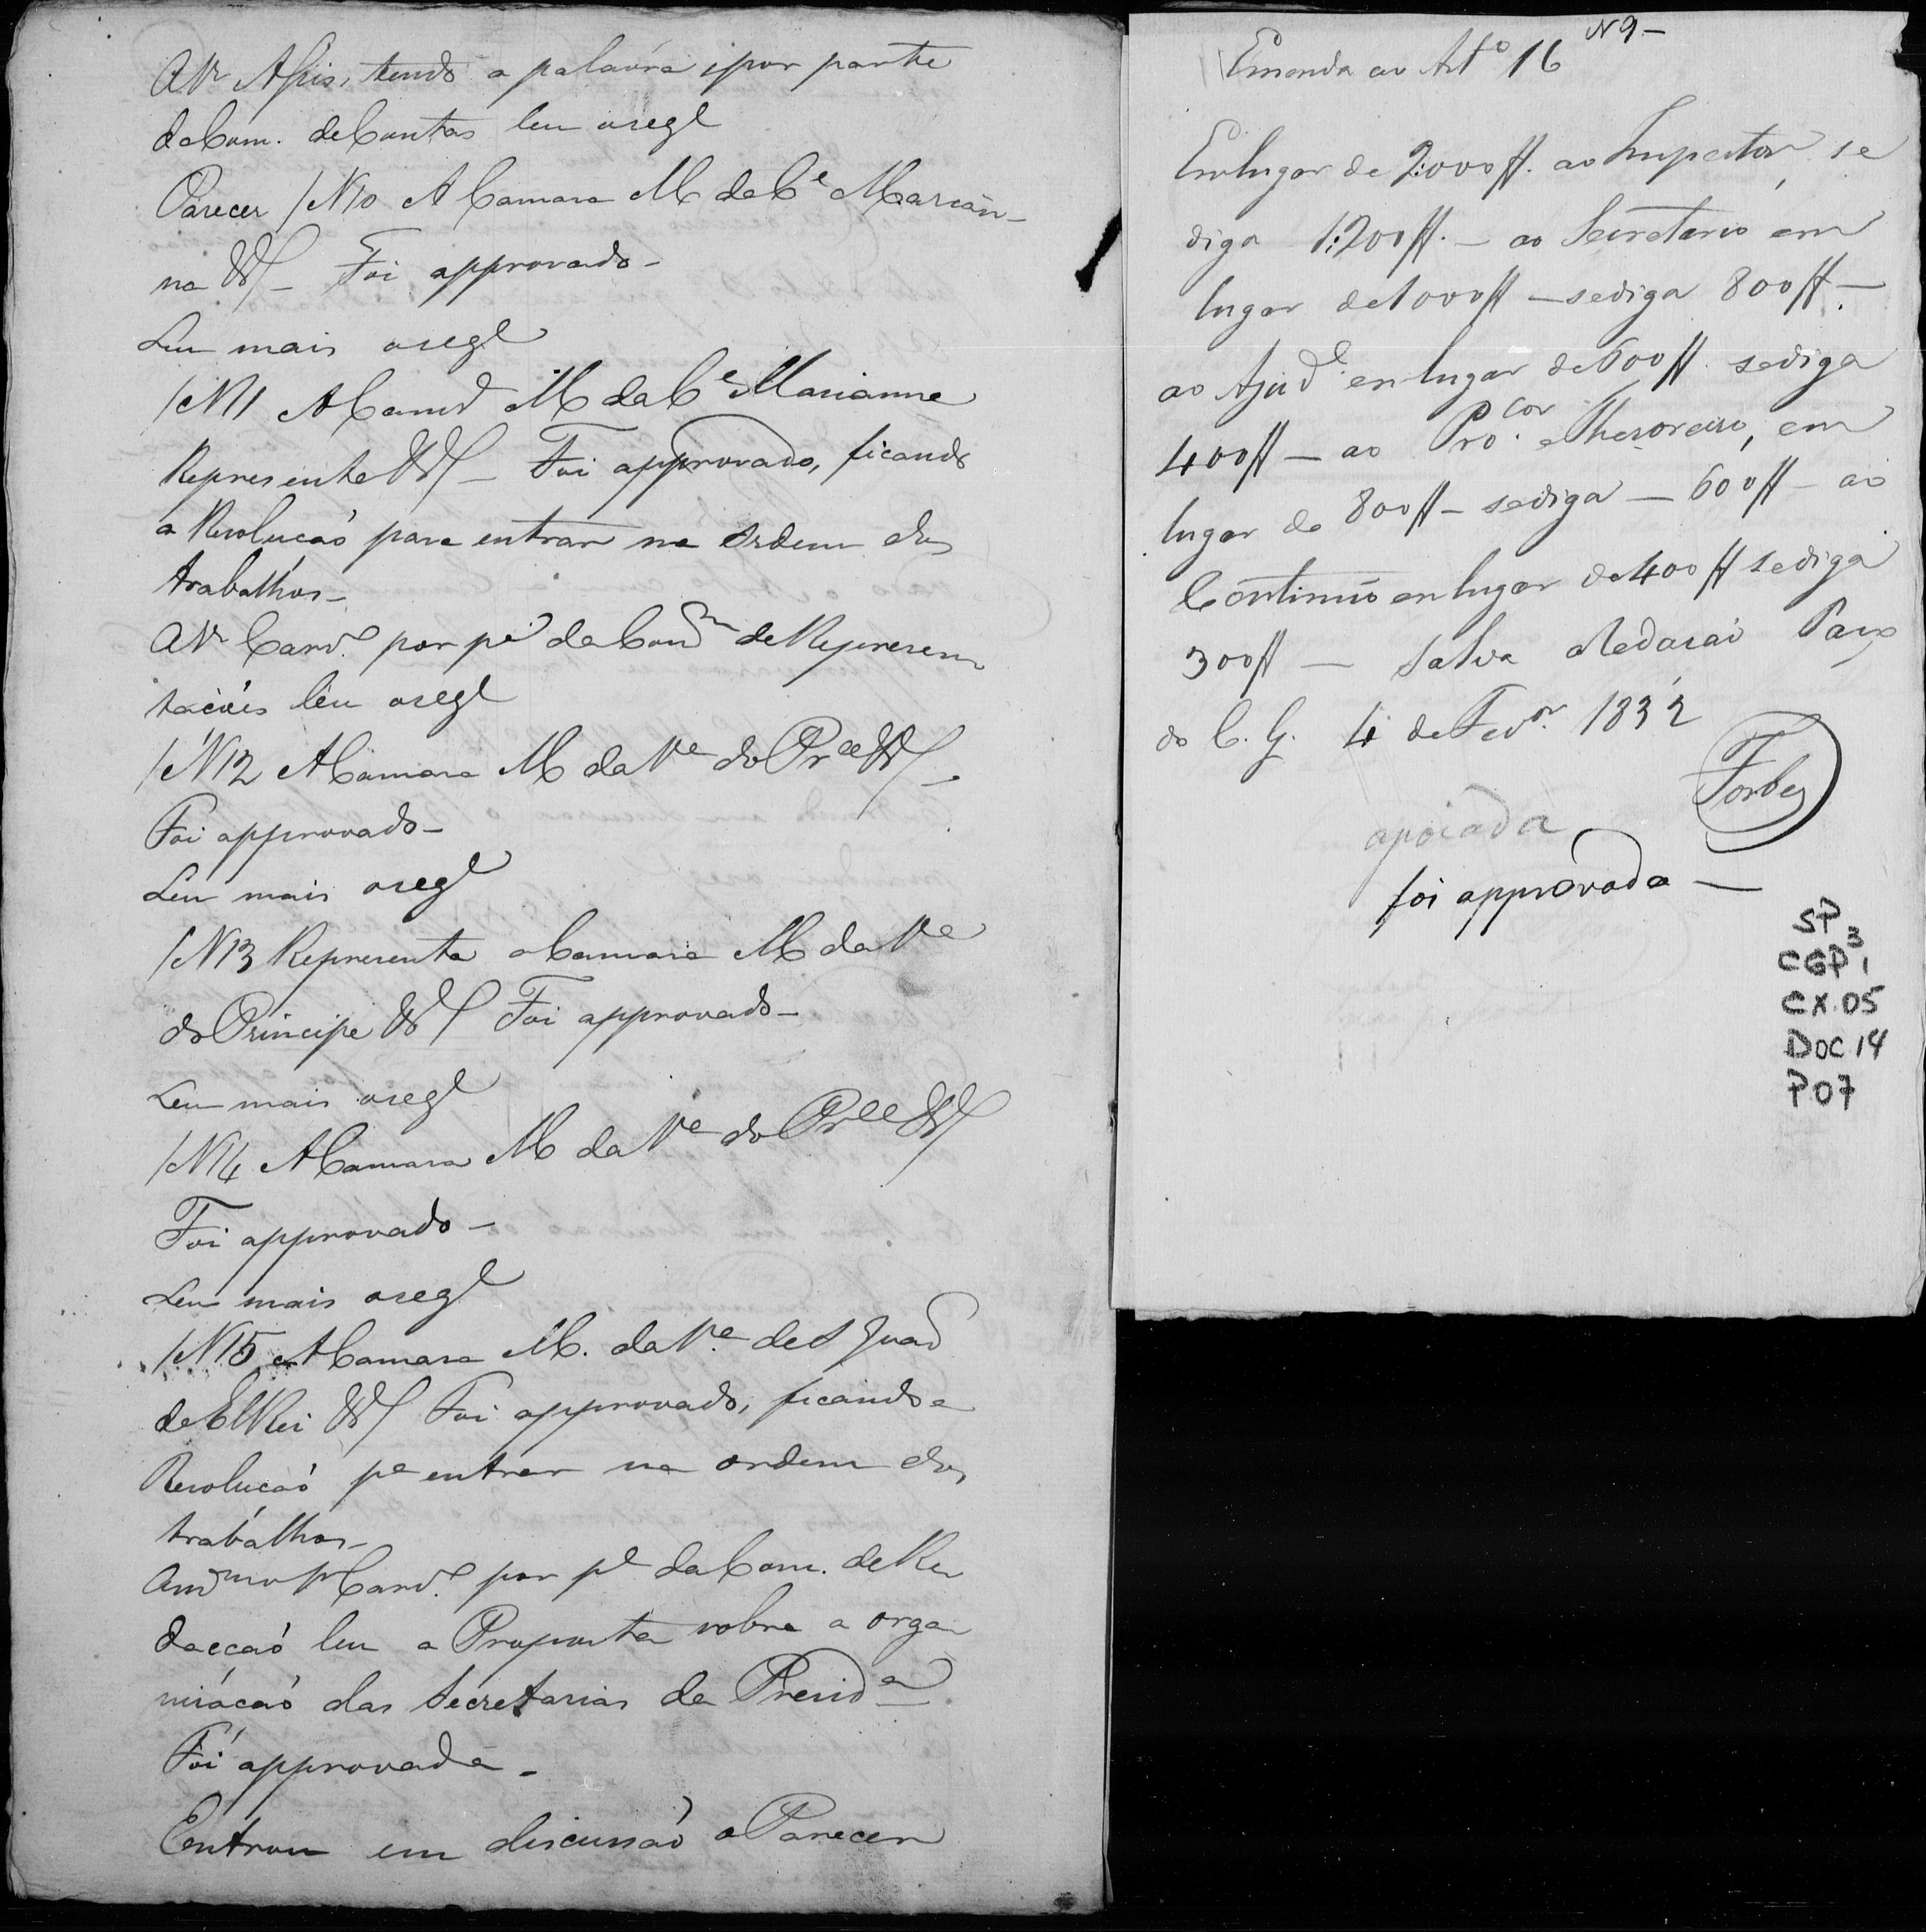 O Sr Assis, tendo a palavra, por parte
da Com. de Contas leu o segte
Parecer /N10 A Camara M da Ce Marian-
na &/ - Foi approvado -
Leu mais o segte
/N11 A Camara M da Ce Marianna
Representa &/ - Foi approvado, ficando
a Resolucaó para entrar na ordem dos
trabalhos -
O Sr Card.o por pe da Comm de Represen
tacoés leu o segte
/N12 A Camara M da Va do Pree &/ -
Foi approvado -
Leu mais o segte
/N13 Representa a Camara M da Va
do Principe &/ Foi approvado -
Leu mais o segte
/N14 A Camara M da Va do Pree &/
Foi approvado -
Leu mais o segte
/N15 A Camara M. da Va de S Joaó
de ElRei &/ Foi approvado, ficando a
Resolucaó pa entrar na ordem dos
trabalhos -
O mesmo Sr Card.o por pe da Com. de Re
daccaó leu a Proposta sobre a orga
nisacaó das Secretarias da Presida
Foi approvada -
Entrou em discussaó o Parecer
N 9 -
Emenda ao Arto 16
Em lugar de 2:000ff. ao Inspector, se
diga 1:200ff. - ao Secretario em
lugar de 1000ff - se diga 800ff -
ao Ajude em lugar de 600ff se diga
400ff - ao Pro.cor e Thesoreiro, em
lugar de 800ff - se diga - 600ff - ao
Continuo em lugar de 400ff se diga
300ff - Salva a Redacaó Paço
do C. G. 4 de Fevr.o 1832
Forbes
apoiada
foi approvada -
SP
CGP 1 3
CX.05
DOC 14
P.07